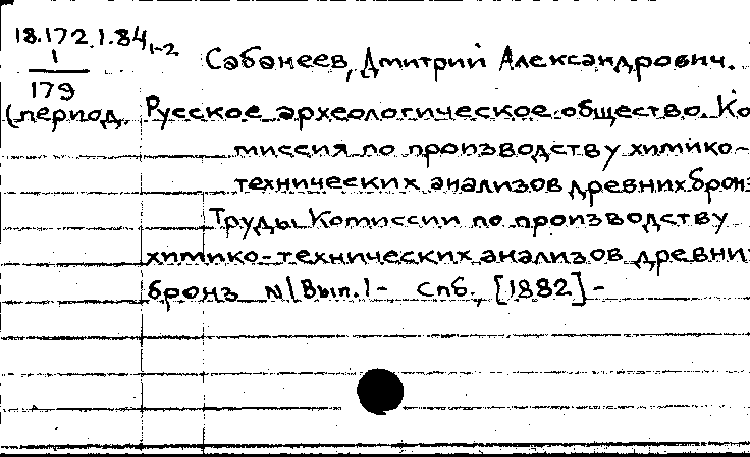 18.172.1.84 1-2
1
179
(период.
Сабанеев, Дмитрий Александрович.
Русское археологическое общество. Ко
миссия по производству химико-
технических анализов древних бронз
Труды Комиссии по производству
химико-технических анализов древни
бронз N1 Вып.1- Спб., [1882]-